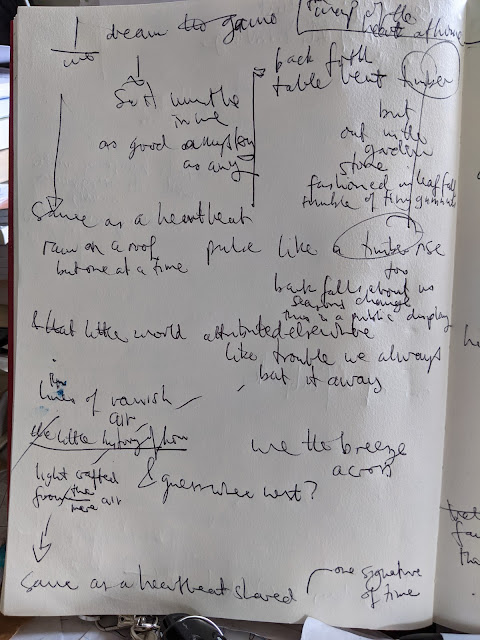 I dream the game
beat at home
back forth
table bent timber
So it must be
in me
as good a mystery
as any
but
out in the
garden
stone
fashioned in leaf fall
tumble of tiny
same as a heartbeat
rain on a roof
but one at a time
pulse like a timber rise
too
back falls about us
seasons change
this is a public display
& that little world attributed elsewhere
like trouble we always
but it away
lines of vanish
air
the little history of how
we the breeze
across
light crafted
from the
mere air
& guess where west?
same as a heartbeat shared
one signature
of time